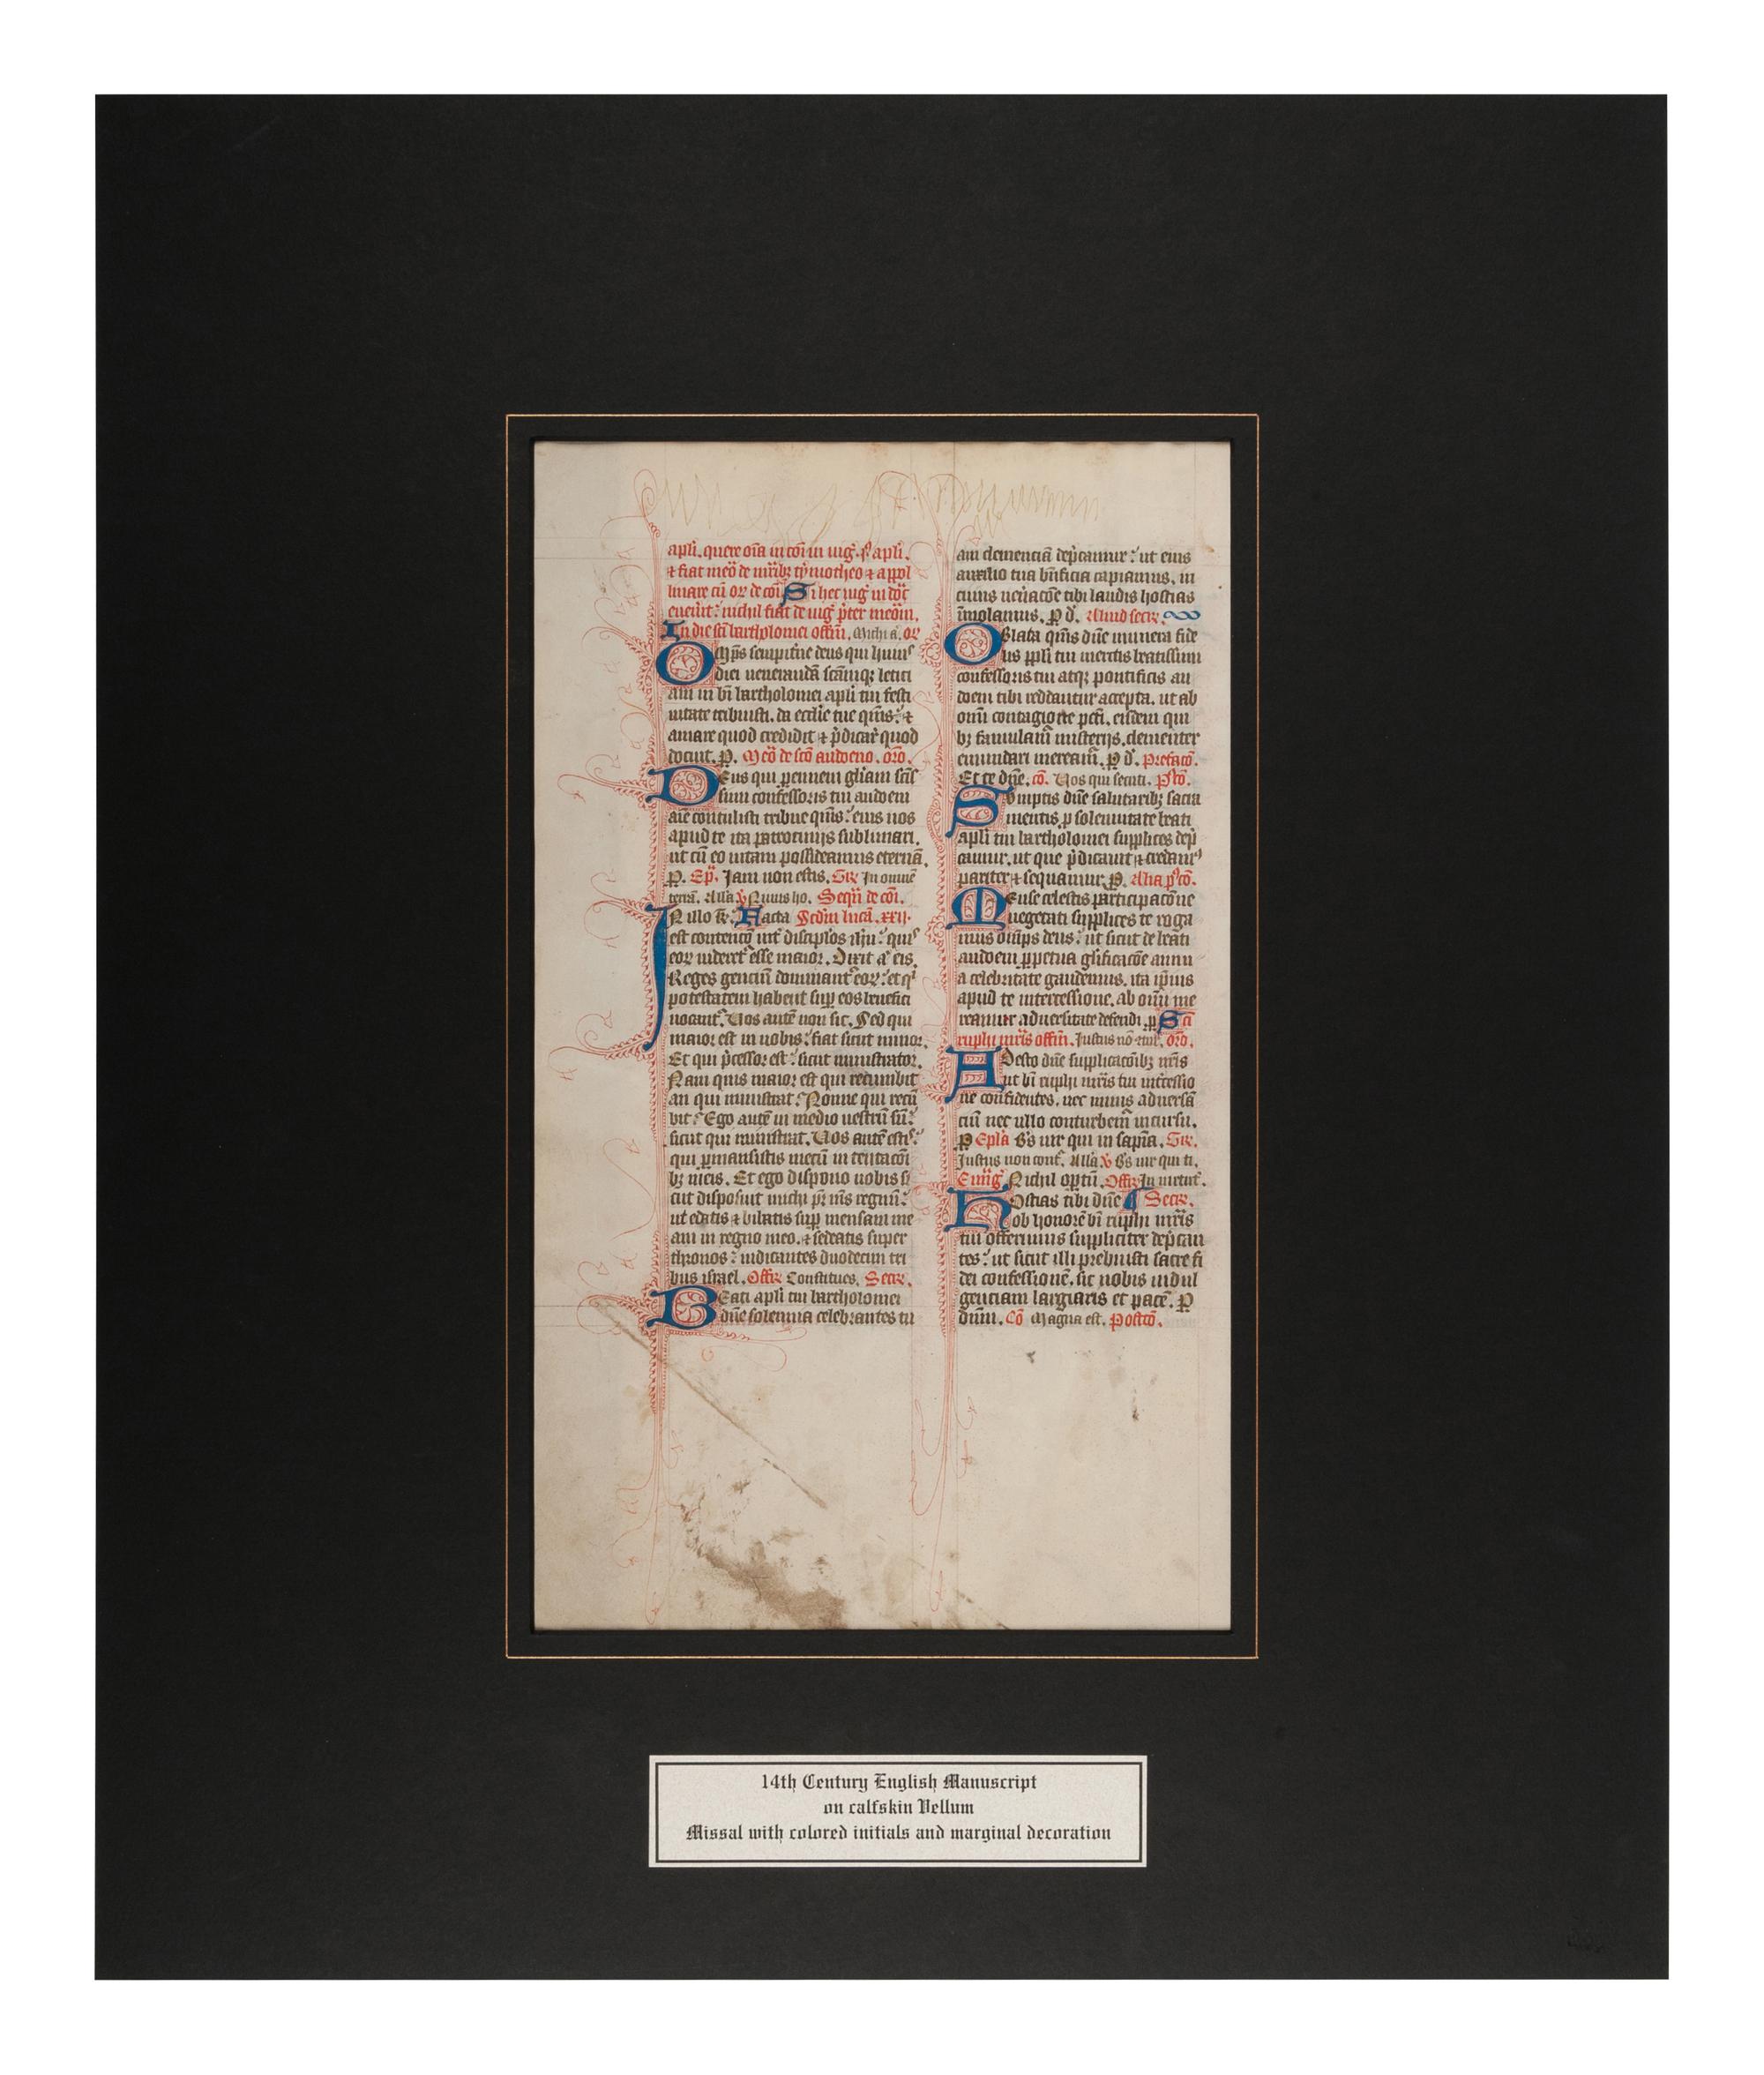 apłi. quere oīa in cōi in uig̃. i apłi.
⁊ fiat meō de mr̄ibꝫ tymotheo ⁊ appol
linare cū or̄ de cōi. Si hec uig̃ in dōc
euen̄it: nichil fiat de uig̃ p̄ter meōm.
In die sc̄i bartholomei offm̄. Michi ā. or̄
Omp̄s sempit̄ne deus qui huiꝰ
diei uenerandā sc̄amqꝫ letici
am in bī bartholomei apłi tui festi
uitate tribuisti. da eccłie tue qm̄s: ⁊
amare quod credidit ⁊ p̄dicar̄ quod
docuit. ꝑ. Meō de sc̄o audoeno. orō.
Deus qui ꝑennem głiam sc̄is
simi confessoris tui audoem
aīe contulisti tribue qm̄s: eius nos
apud te ita patrocinijs sublimari.
ut cū eo uitam possideamus eternā.
ꝑ. Ep̄. Jam non estis. Gr̄. In omnē
terrā. Alła ℣ Nimis ho. Seqū de cōi.
In illo t̄r. Facta Scdm̄ lucā. xxij.
est contencio int̄ disciplos ih̄u: quiſ
eoꝝ uideret̄ esse maior. Dixit ā eis.
Reges genciū dominant̄ eoꝝ: et qⁱ
potestatem habent suꝑ eos benefici
uocant̄. Uos autē non sic. Sed qui
maior est in uobis: fiat sicut minor.
Et qui p̄cessor est: sicut ministrator.
Nam quis maior est qui recumbit
an qui ministrat? Nonne qui recū
bit? Ego autē in medio uestrū sū:
sicut qui ministrat. Uos autē estis:
qui ꝑmansistis mecū in temtacōi
bꝫ meis. Et ego dispono uobis si
cut disposuit michi p̄r m̄s regnū:
ut edatis ⁊ bibatis suꝑ mensam me
am in regno meo. ⁊ sedeatis super
thronos: iudicantes duodecim tri
bus israel. Offr̄ Constitues. Secr̄.
Beati apłi tui bartholomei
dn̄e solennia celebrantes tu
am clemenciā dep̄camur: ut eius
auxilio tua bn̄ficia capiamus. in
cuius uen̄acōe tibi laudis hostias
īmolamus. ꝑ d̄. Aliud secr̄.
Oblata qm̄s dn̄e munera fide
lis ppłi tui meritis beatissimi
confessoris tui atqꝫ pontificis au
doeni tibi reddantur accepta. ut ab
om̄i contagione pc̄ti. eisdem qui
bꝫ famulam̄ misterijs. clementer
emundari meream̄. ꝑ d̄. Prefacō.
Et te dn̄e. cō. Uos qui secuti. Pꝰtcō.
Sumptis dn̄e salutaribꝫ sacra
mentis. ꝑ solennitate beati
apłi tui bartholomei supplices dep̄
camur. ut que p̄dicauit ⁊ credamꝰ
pariter ⁊ sequamur. ꝑ. Alia pꝰtcō.
Mense celestis participacōne
uegetati supplices te roga
mus omp̄s deus: ut sicut de beati
audoeni ꝑpetua głificacōe annu
a celebritate gaudemus. ita ip̄ius
apud te intercessione. ab om̄i me
reamur aduersitate defendi. ꝑ Sc̄i
ruphi mr̄is offm̄. Justus nō 9tur. orō.
Adesto dn̄e supplicacōibꝫ nr̄is
ut bī ruphi mr̄is tui int̄cessio
ne confidentes. nec minis aduersā
cīū nec ullo conturbem̄ incursu.
ꝑ Epła B̄s uir qui in sapīa. Gr̄.
Justus non cont̄. Alła ℣ B̄s uir qui ti.
Ewg̃ Nichil optū. Offr̄ In uirtut̄.
Hostias tibi dn̄e ¶ Secr̄.
ob honorē bī ruphi mr̄is
tui offerimus suppliciter dep̄can
tes: ut sicut illi prebuisti sacre fi
dei confessionē. sic nobis indul
genciam largiaris et pacē. ꝑ
dn̄m. Cō Magna est. Postcō.
14th Century English Manuscript
on calfskin Vellum
Missal with colored initials and marginal decoration